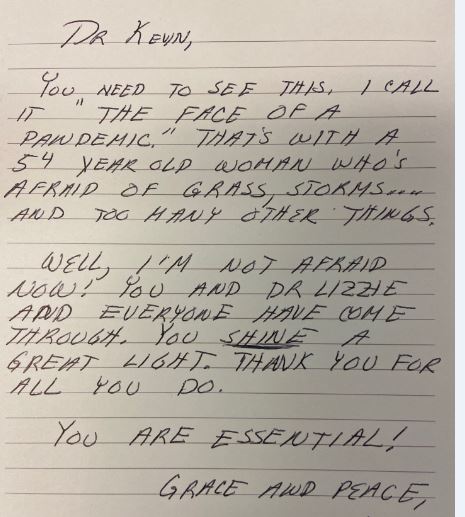 DR KEVIN,
YOU NEED TO SEE THIS. I CALL
IT "THE FACE OF A
PANDEMIC." THAT'S WITH A
54 YEAR OLD WOMAN WHO'S
AFRAID OF GRASS, STORMS....
AND TOO MANY OTHER THINGS.
WELL, I'M NOT AFRAID
NOW! YOU AND DR LIZZIE
AND EVERYONE HAVE COME
THROUGH. YOU SHINE A
GREAT LIGHT. THANK YOU FOR
ALL YOU DO.
YOU ARE ESSENTIAL!
GRACE AND PEACE,